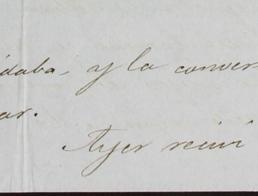 daba, y la conver
ar.
Ayer reciví